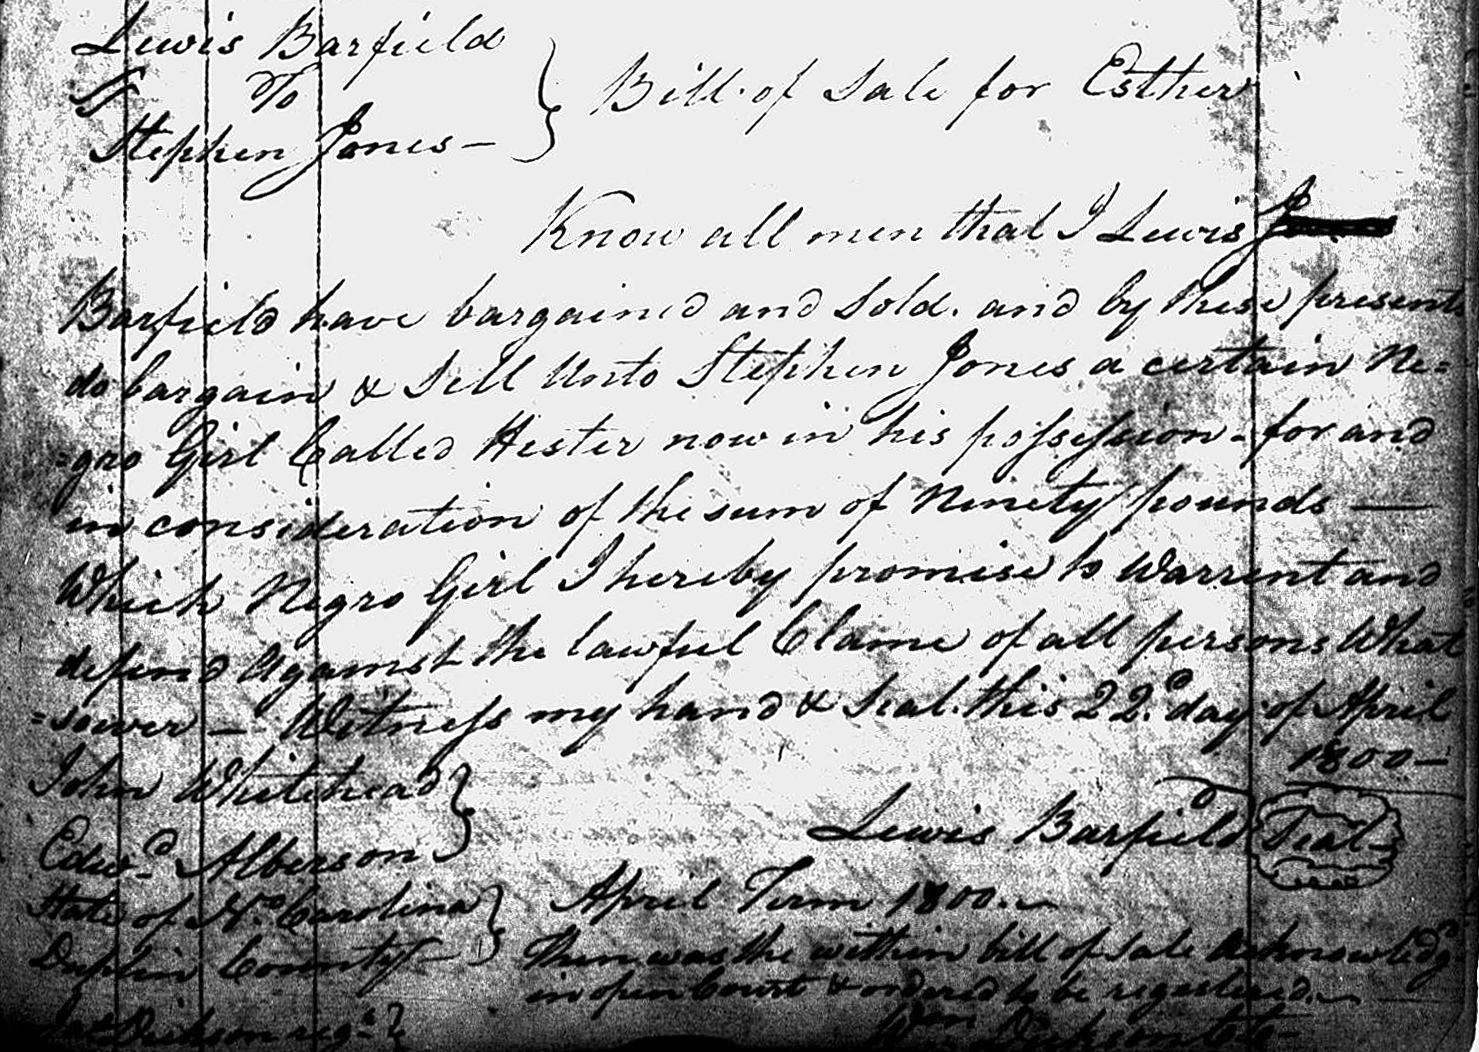 Lewis Barfield
To
Stephen Jones —
Bill of Sale for Esther
Know all men that I Lewis
Barfield have bargained and Sold. and by these presents
do bargain & Sell Unto Stephen Jones a certain Ne=
=gro Girl Called Hester now in his possession - for and
in consideration of the sum of Ninety pounds —
Which Negro Girl I hereby promise to Warrent and
defend Against the lawful Clame of all persons What
=sower — Witness my hand & Seal. this 22d day of April
1800 —
John Whitehead
Lewis Barfield Seal
Edwd. Alberson
State of No. Carolina
April Term 1800.
Duplin County
Then was the within bill of Sale acknowledgd
in open Court & ordered to be registered.
Dickson regr.
Wm. Dickson